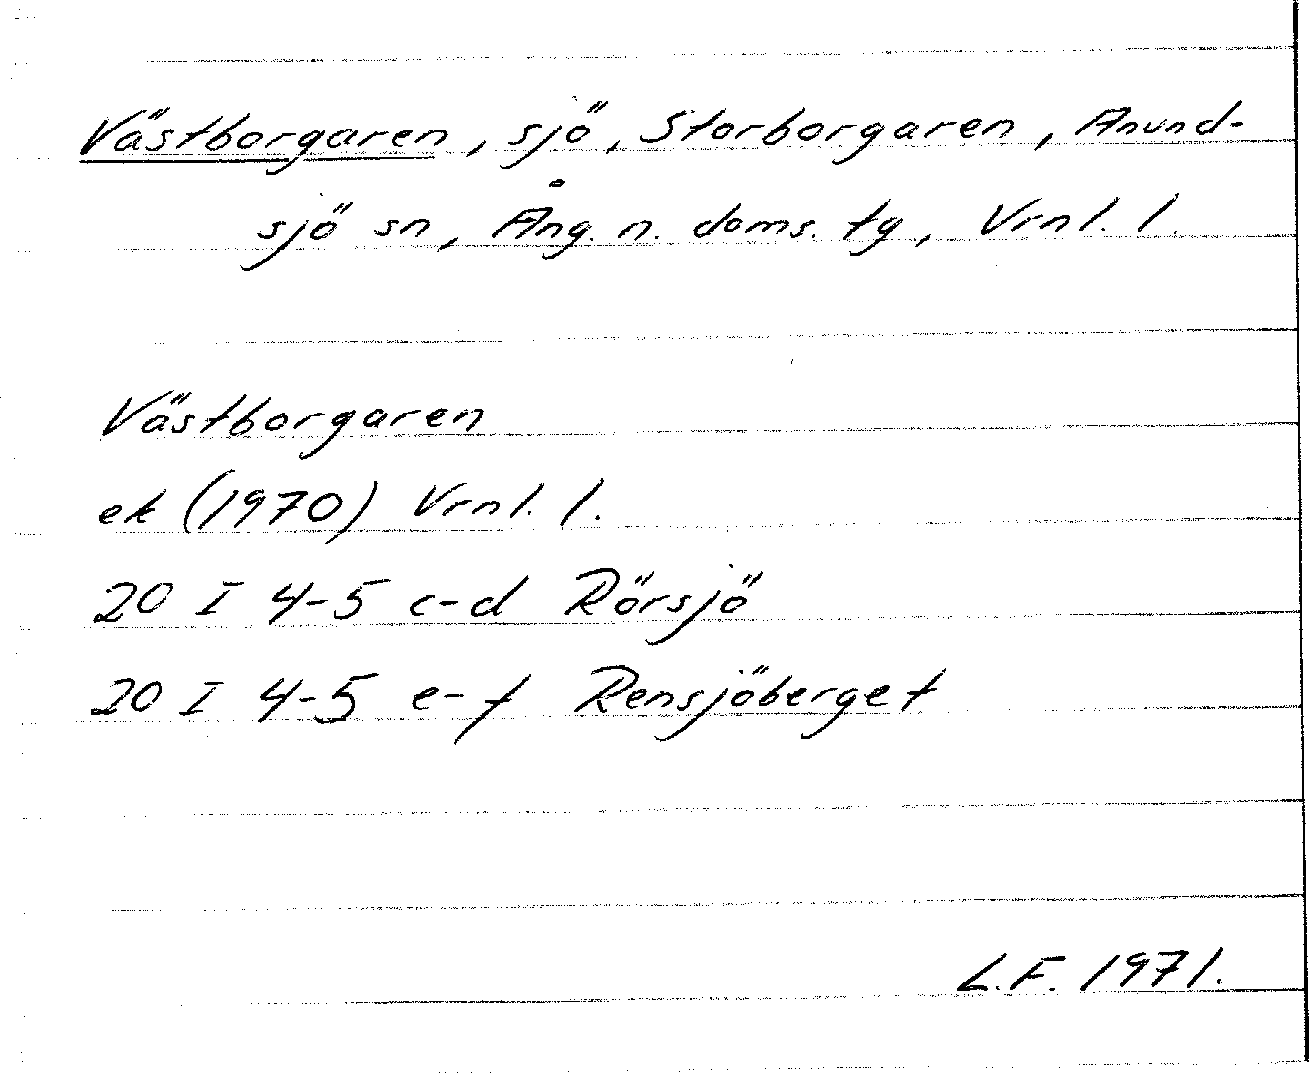 Västborgaren, sjö, Storborgaren, Anund-
sjö sn, Ång. n. doms. tg, Vrnl. l.
Västborgaren
ek (1970) Vrnl. l.
20 I 4-5 c-d Rörsjö
20 I 4-5 e-f Rensjöberget
L.F. 1971.